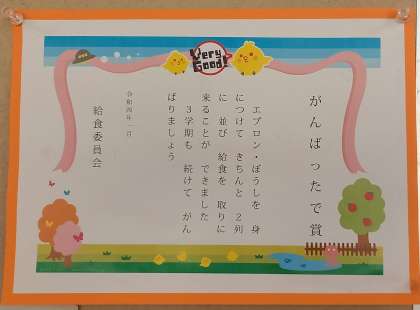 Very Good!
がんばったで賞
エプロン・ぼうしを 身
につけて きちんと 2列
に 並び 給食を 取りに
来ることが できました
3学期も 続けて がん
ばりましょう
令和四年 一日
給食委員会